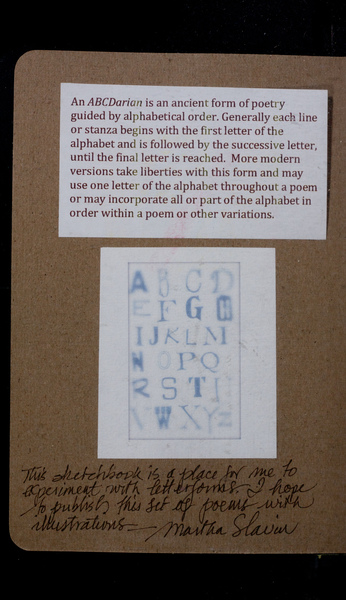 An ABCDarian is an ancient form of poetry
guided by alphabetical order. Generally each line
or stanza begins with the first letter of the
alphabet and is followed by the successive letter,
until the final letter is reached. More modern
versions take liberties with this form and may
use one letter of the alphabet throughout a poem
or may incorporate all or part of the alphabet in
order within a poem or other variations.
A B C D
E F G H
I J K L M
N O P Q
R S T U
V W X Y Z
This sketchbook is a place for me to
experiment with letterforms. I hope
to publish this set of poems with
illustrations — Martha Slavin